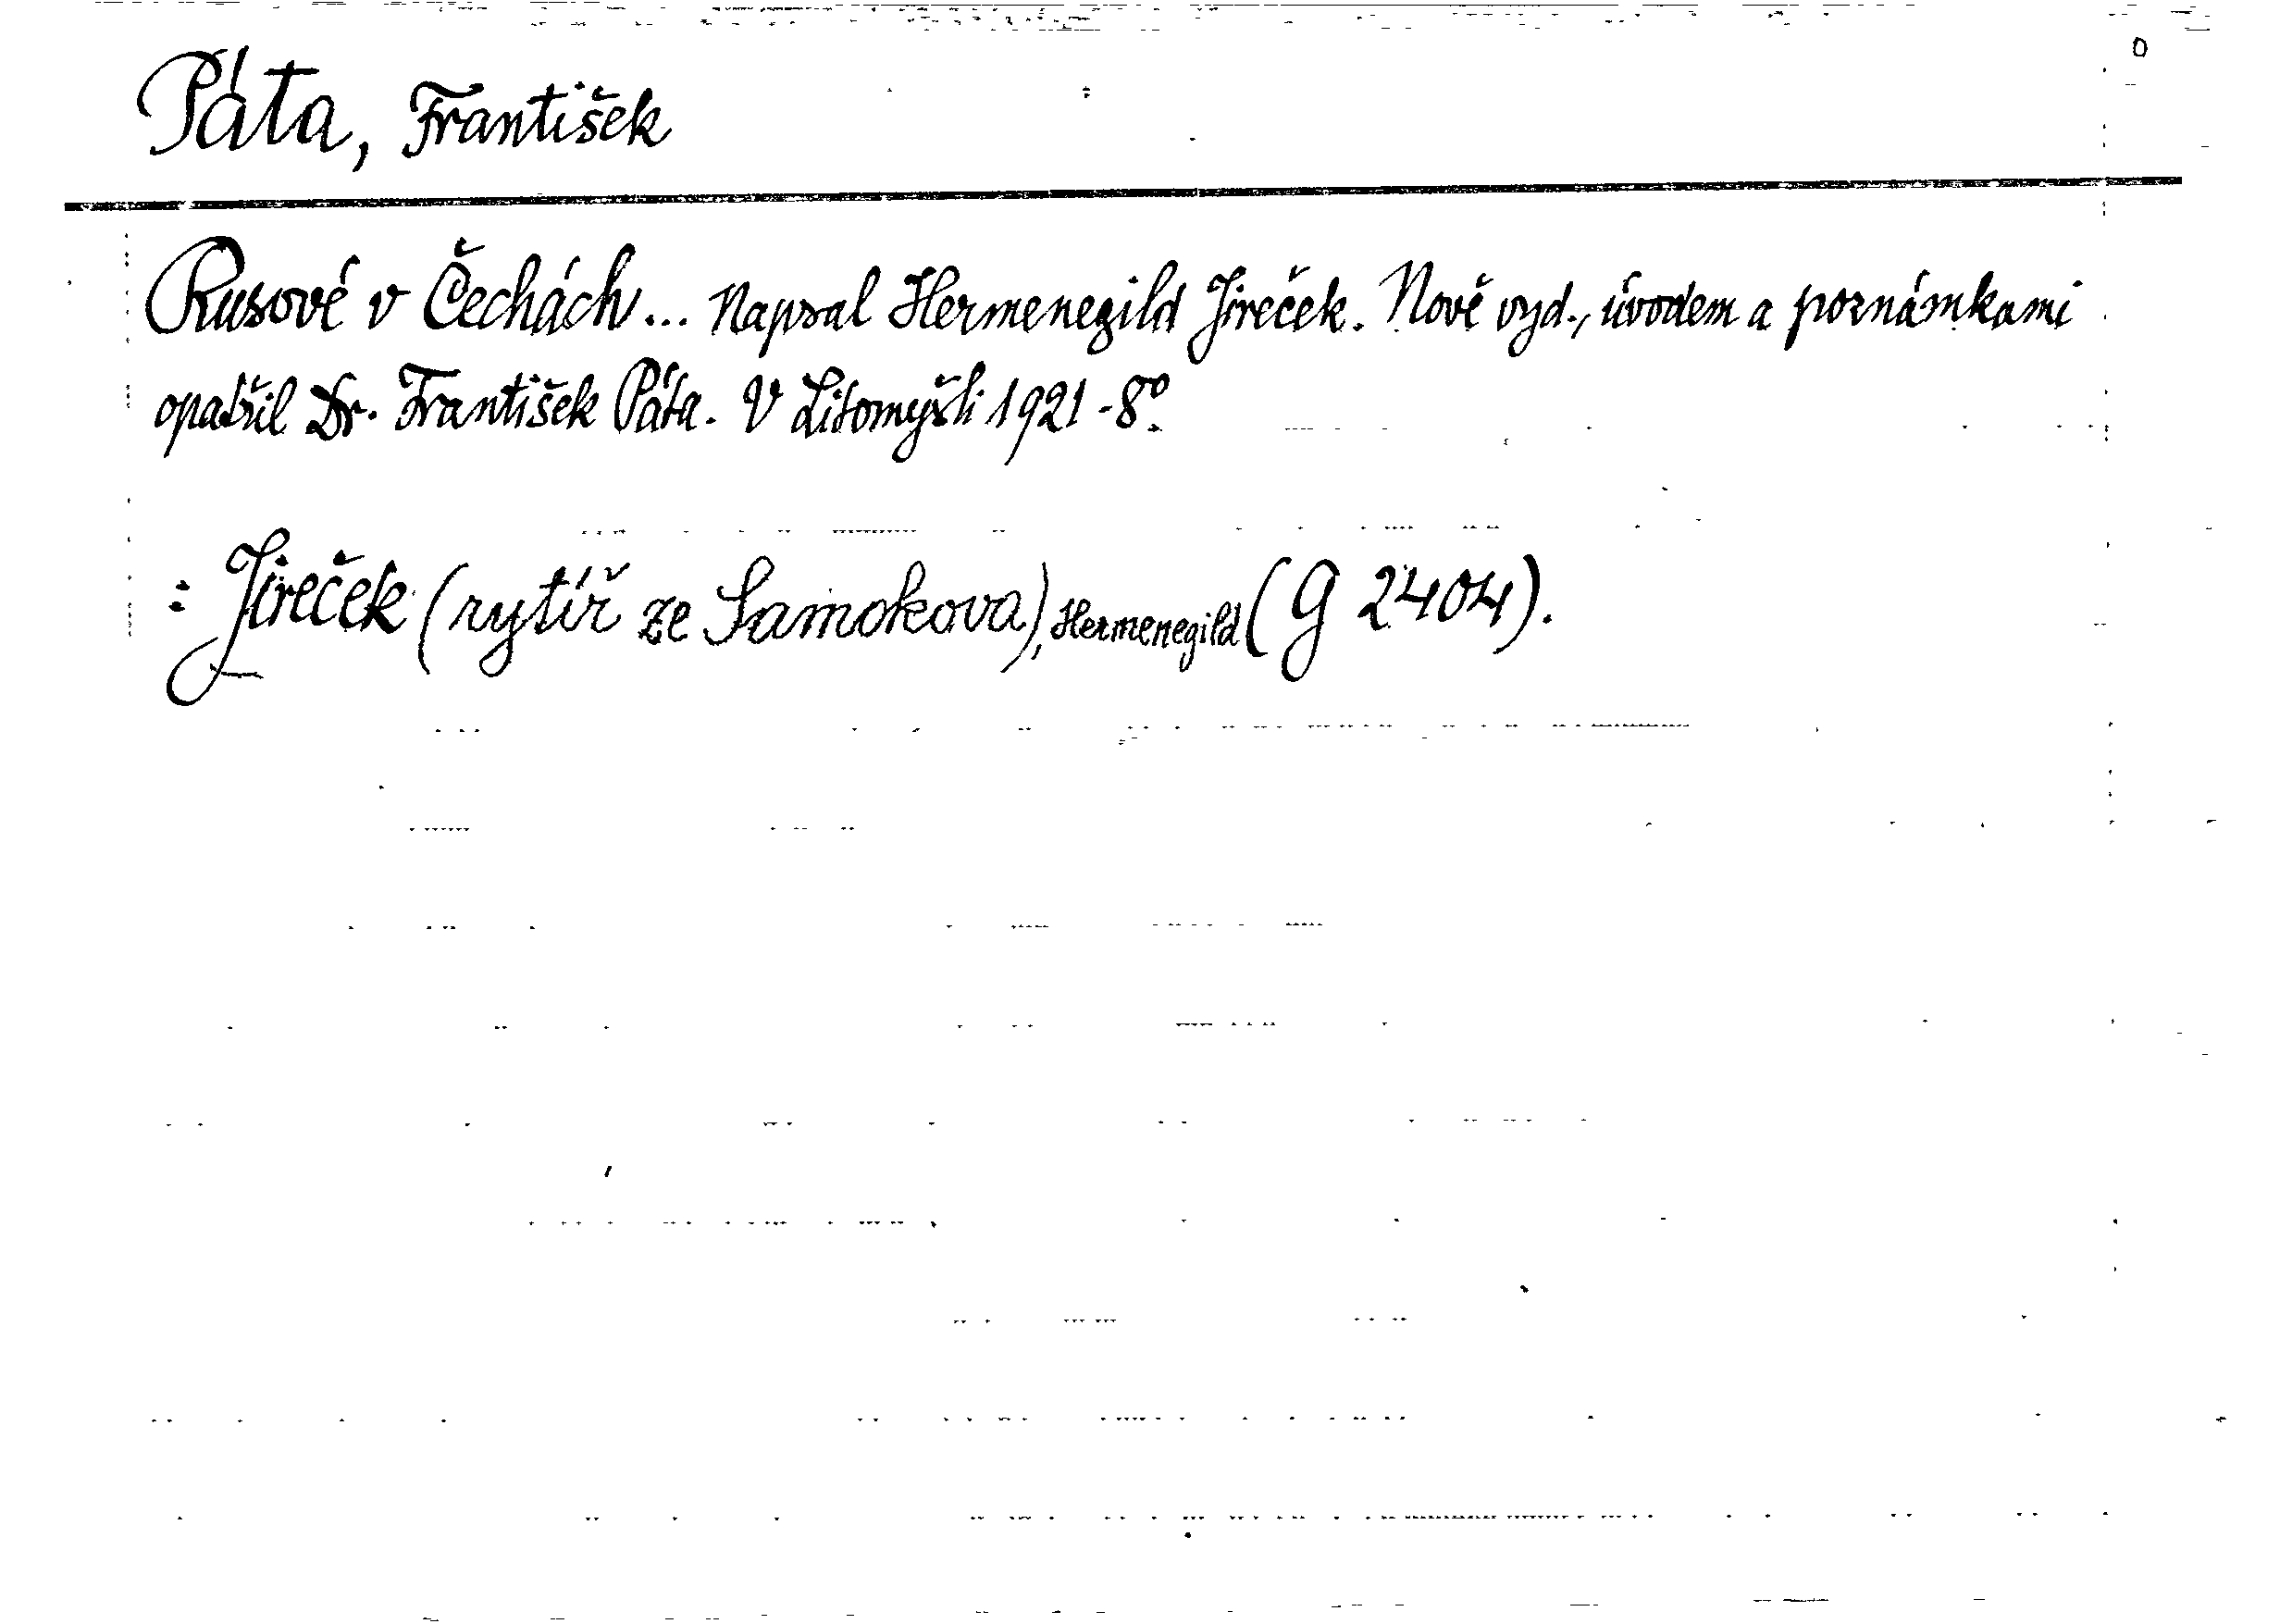 Páta, František
Rusové v Čechách... Napsal Hermenegild Jireček. Nově vyd., úvodem a poznámkami
opatřil Dr. František Páta. V Litomyšli 1921 - 8º.
: Jireček (rytíř ze Samokova), Hermenegild (G 2404).